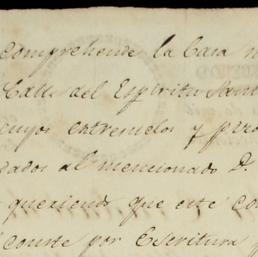 comprehende la Casa n
Calle del Espiritu Sant
cuyos entresuelos y
dados al mencionado D.
queriendo que este co
conste por Escritura